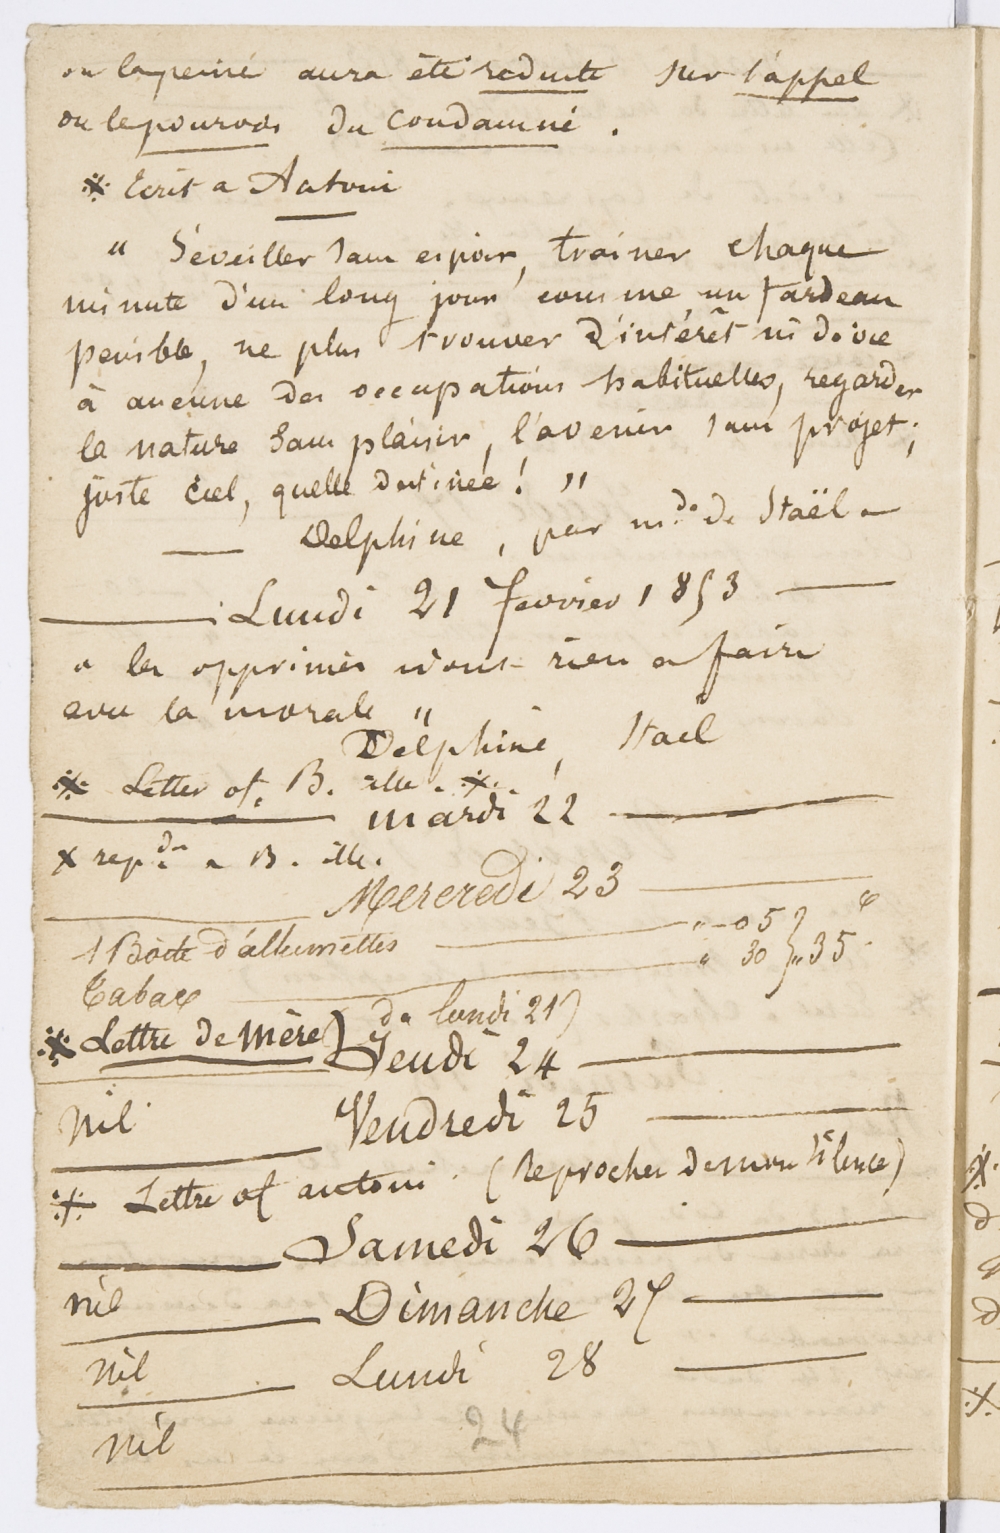 ou la peine aura été reduite sur l'appel
ou le pourvoi du condamné.
※ Ecrit a Antoni
" S'éveiller sans espoir, trainer chaque
minute d'un long jour comme un fardeau
penible, ne plus trouver d'intérêt ni de vie
à aucune des occupations habituelles, regarder
la nature sans plaisir, l'avenir sans projet;
juste ciel, quelle destinée! "
— Delphine, par mde de Staël —
Lundi 21 fevrier 1853
" les opprimés n'ont rien a faire
avec la morale "
Delphine, Stael
※ Letter of B. ille. ※
mardi 22
x repdu a B. ille.
Mercredi 23
1 Boite d'allumettes " 05
Tabac " 30 } " 35
※ Lettre de Mère) du lundi 21)
Jeudi 24
nil
Vendredi 25
※ Lettre of antoni (Reproches de mon silence)
Samedi 26
nil
Dimanche 27
nil
Lundi 28
nil
24